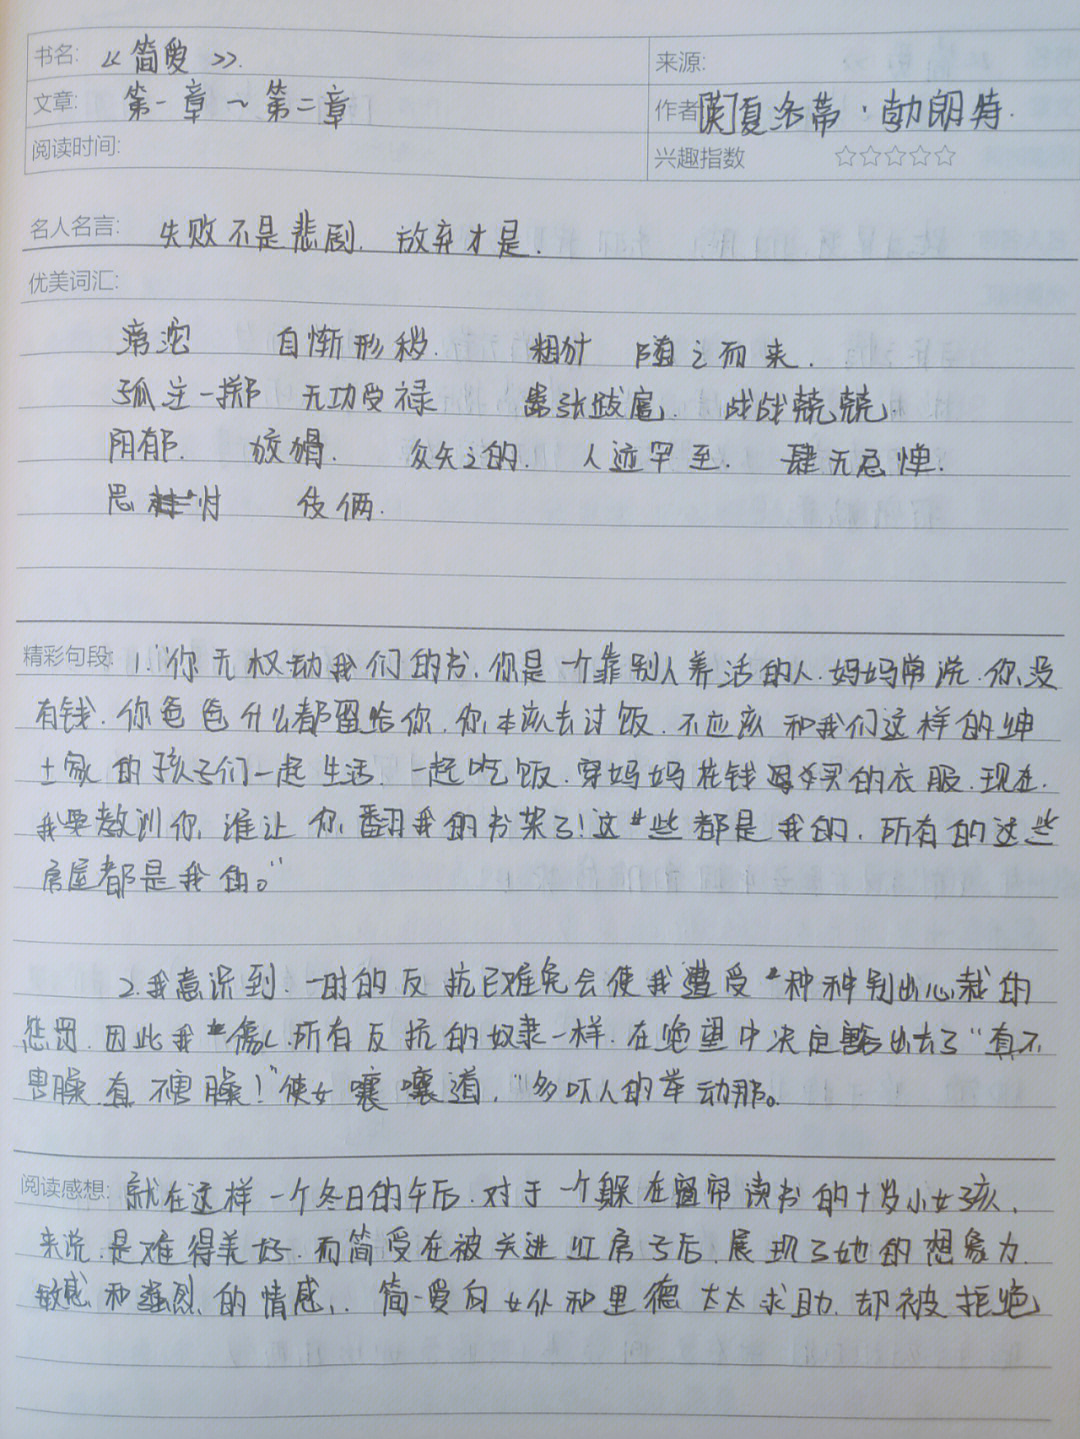 书名: 《简爱》.
来源:
文章: 第一章～第二章
作者 [英]夏洛蒂·勃朗特.
阅读时间:
兴趣指数 ☆☆☆☆☆
名人名言: 失败不是悲剧. 放弃才是.
优美词汇:
滂沱 自惭形秽. 粗计 随之而来.
孤注一掷 无功受禄 嚣张跋扈. 战战兢兢.
阴郁. 狡猾. 人迹罕至. 肆无忌惮.
思忖 伎俩.
精彩句段: 1."你无权动我们的书.你是一个靠别人养活的人.妈妈常说.你没
有钱.你爸爸什么都留给你.你本该去讨饭.不应该和我们这样的绅
士家的孩子们一起生活.一起吃饭.穿妈妈花钱买的衣服.现在.
我要教训你,谁让你翻我的书架了!这些都是我的.所有的这些
房屋都是我的。"
2.我意识到.一时的反抗已难免会使我遭受种种别出心裁的
惩罚.因此我像所有反抗的奴隶一样.在绝望中决定豁出去了"真不
害臊.真不害臊!"使女嚷嚷道,"多吓人的举动那。
阅读感想: 就在这样一个冬日的午后.对于一个躲在窗帘读书的十岁小女孩.
来说.是难得美好.而简爱在被关进红房子后.展现了她的想象力.
敏感和强烈的情感,.简爱向女仆和里德太太求助.却被拒绝